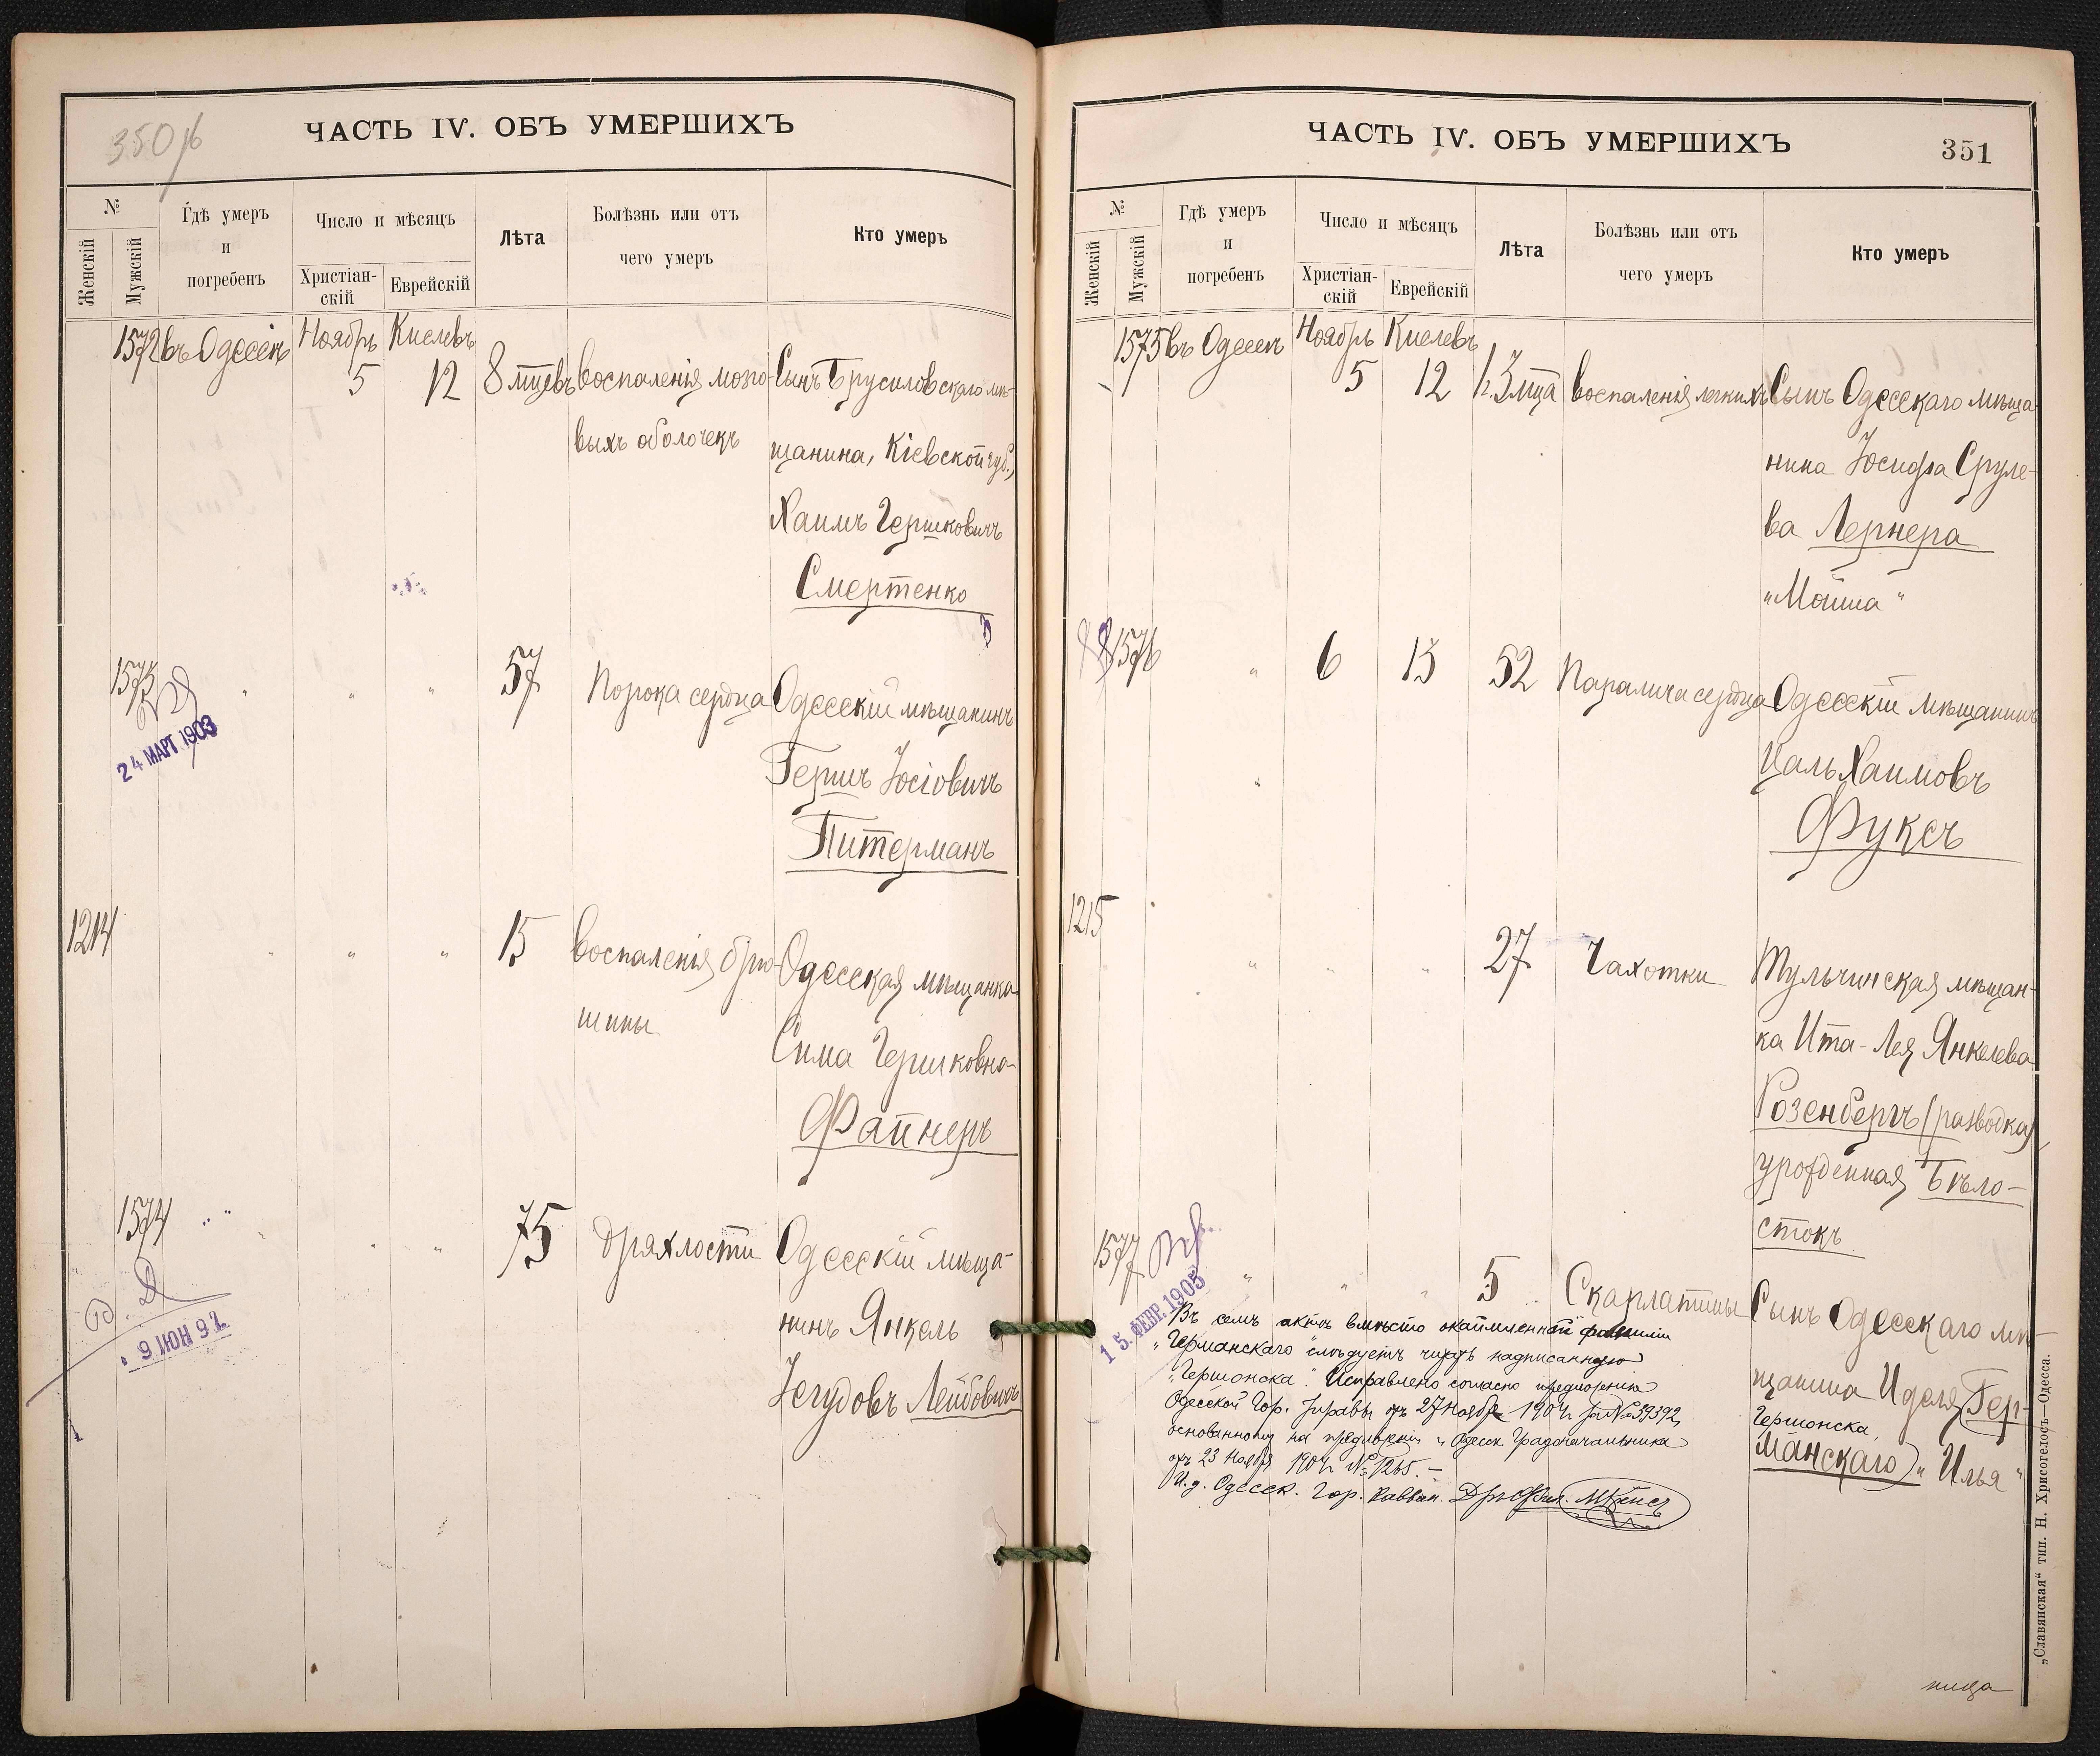 350 об
ЧАСТЬ IV. ОБЪ УМЕРШИХЪ
№
Женскій
Мужскій
Гдѣ умеръ
и
погребенъ
Число и мѣсяцъ
Христіан-
скій
Еврейскій
Лѣта
Болѣзнь или отъ
чего умеръ
Кто умеръ
1572 въ Одессѣ Ноябрь Кислевъ
5 12 8 мѣцевъ воспаленія мозго- Сынъ Брусиловскаго мѣ-
выхъ оболочекъ щанина, Кіевской губ.,
Хаимъ Гершковичъ
Смертенко
1573 " " " 57 Порока сердца Одесскій мѣщанинъ
24 МАРТ 1903
Гершъ Іосіовичъ
Питерманъ
1214 " " " 15 воспаленія брю- Одесская мѣщанка
шины Сима Гершковна
Файнеръ
1574 " " " 75 Дряхлости Одесскій мѣща-
нинъ Янкель
9 ІЮН 97
Іегудовъ Лейбовичъ
ЧАСТЬ IV. ОБЪ УМЕРШИХЪ
351
№
Женскій
Мужскій
Гдѣ умеръ
и
погребенъ
Число и мѣсяцъ
Христіан-
скій
Еврейскій
Лѣта
Болѣзнь или отъ
чего умеръ
Кто умеръ
1575 въ Одессѣ Ноябрь Кислевъ
5 12 3 мца воспаленія легкихъ Сынъ Одесскаго мѣща-
нина Іосифа Сруле-
ва Лернера
„Мойша"
1576 " 6 13 52 Паралича сердца Одесскій мѣщанинъ
Цаль Хаимовъ
Фуксъ
1215 " " " 27 Чахотки Тульчинская мѣщан-
ка Ита-Лея Янкелева
Розенбергъ (разводка)
урожденная Бѣло-
стокъ
1577 " " " 5 Скарлатины Сынъ Одесскаго мѣ-
15. ФЕВР. 1905
щанина Иделя (Гер-
Гершонска
манскаго) „Илья"
Въ семъ актѣ вмѣсто окаймленной фамиліи
„Германскаго" слѣдуетъ читать надписанную
„Гершонска". Исправлено согласно предложенію
Одесской Гор. Управы отъ 27 Ноября 1904 г. за № 39392,
основанному на предложеніи г. Одесск. Градоначальника
отъ 23 Ноября 1904 г. № 1265. —
И. д. Одесск. Гор. Раввин.
„Славянская" тип. Н. Хрисогелосъ—Одесса.